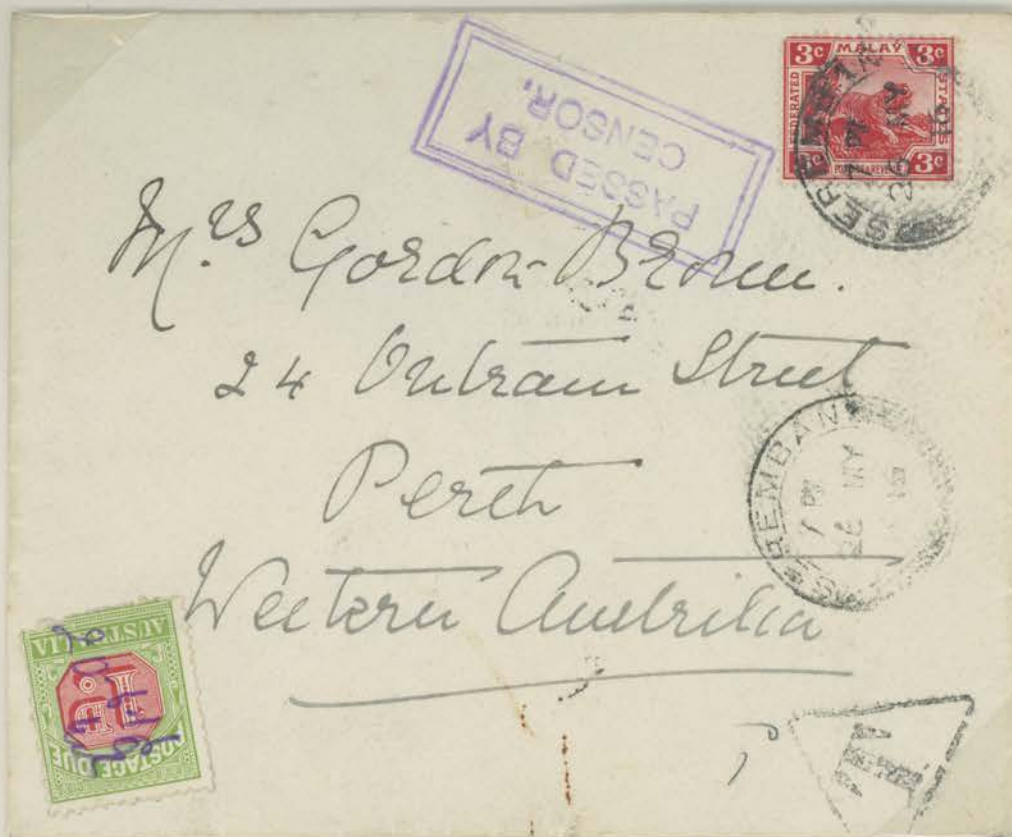 PASSED BY
CENSOR.
3c MALAY 3c
FEDERATED STATES
3c POSTAGE & REVENUE 3c
SEREMBAN
26 MY
Mrs Gordon-Brown.
24 Outram Street
Perth
Western Australia
SEREMBAN
7
26 MY
AUSTRALIA
1D
POSTAGE DUE
T